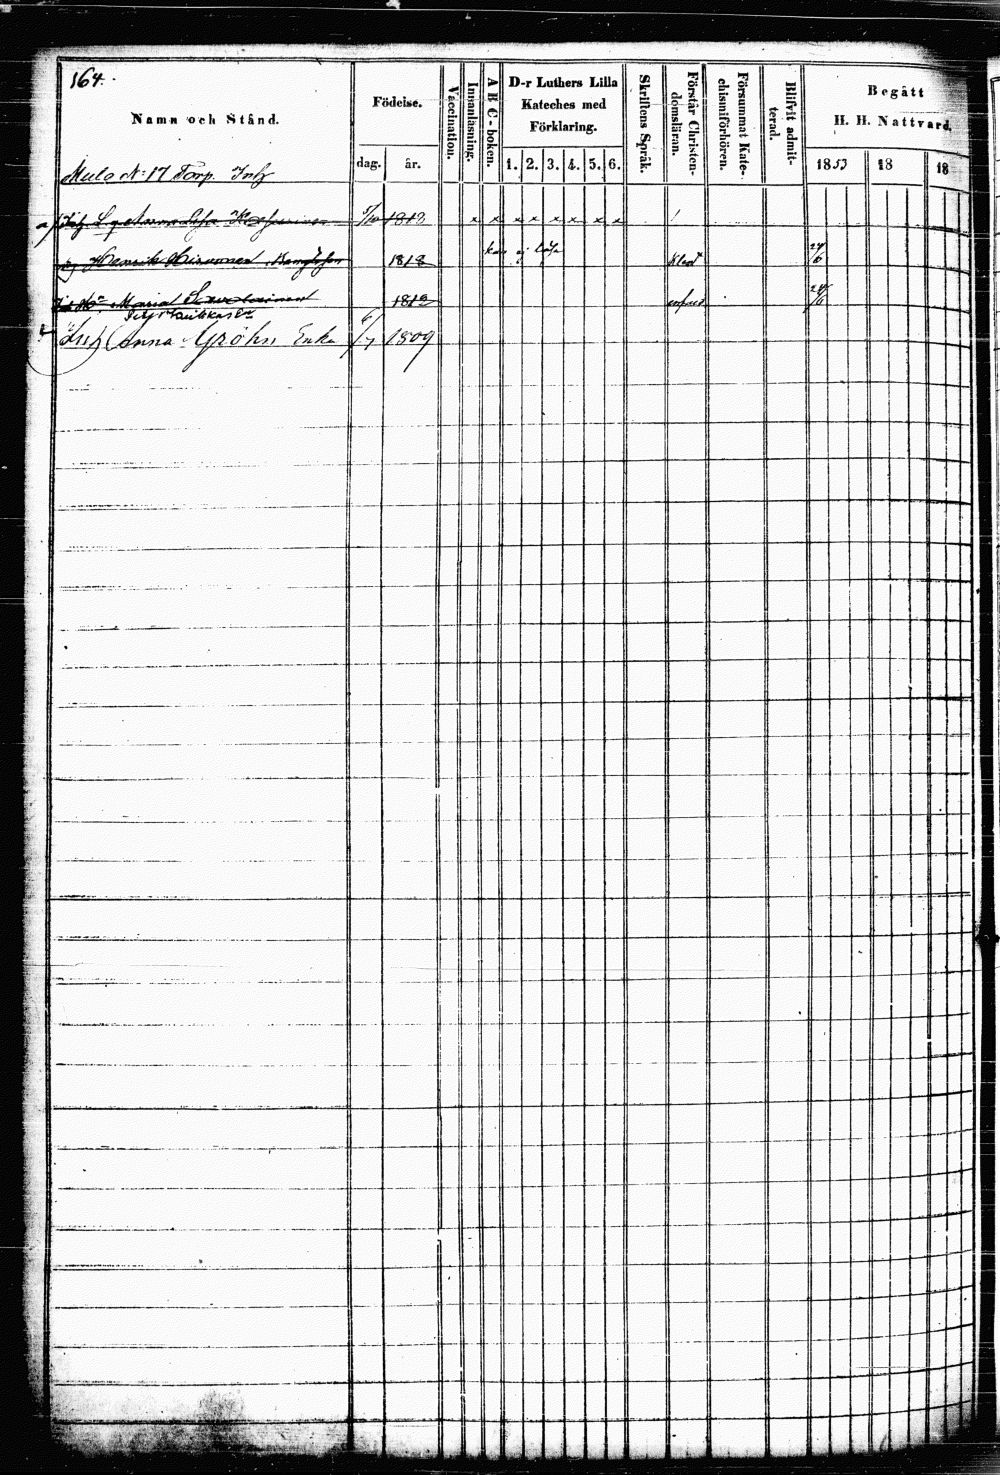 164.
Namn och Stånd.
Födelse.
dag. år.
Vaccination.
Innanläsning.
A B C-boken.
D-r Luthers Lilla
Kateches med
Förklaring.
1. 2. 3. 4. 5. 6.
Skriftens Språk.
Förstår Christen-
domsläran.
Försummat Kate-
chismiförhören.
Blifvit admit-
terad.
Begått
H. H. Nattvard.
1853 18 18
Mulo N:17 Torp. Inh
1813 x x x x x x x x
Henrik Hirvonen 1813 kan ej läsa 24/6
Maria 1812 24/6
Inh Anna Gröhn Enka 6/7 1809